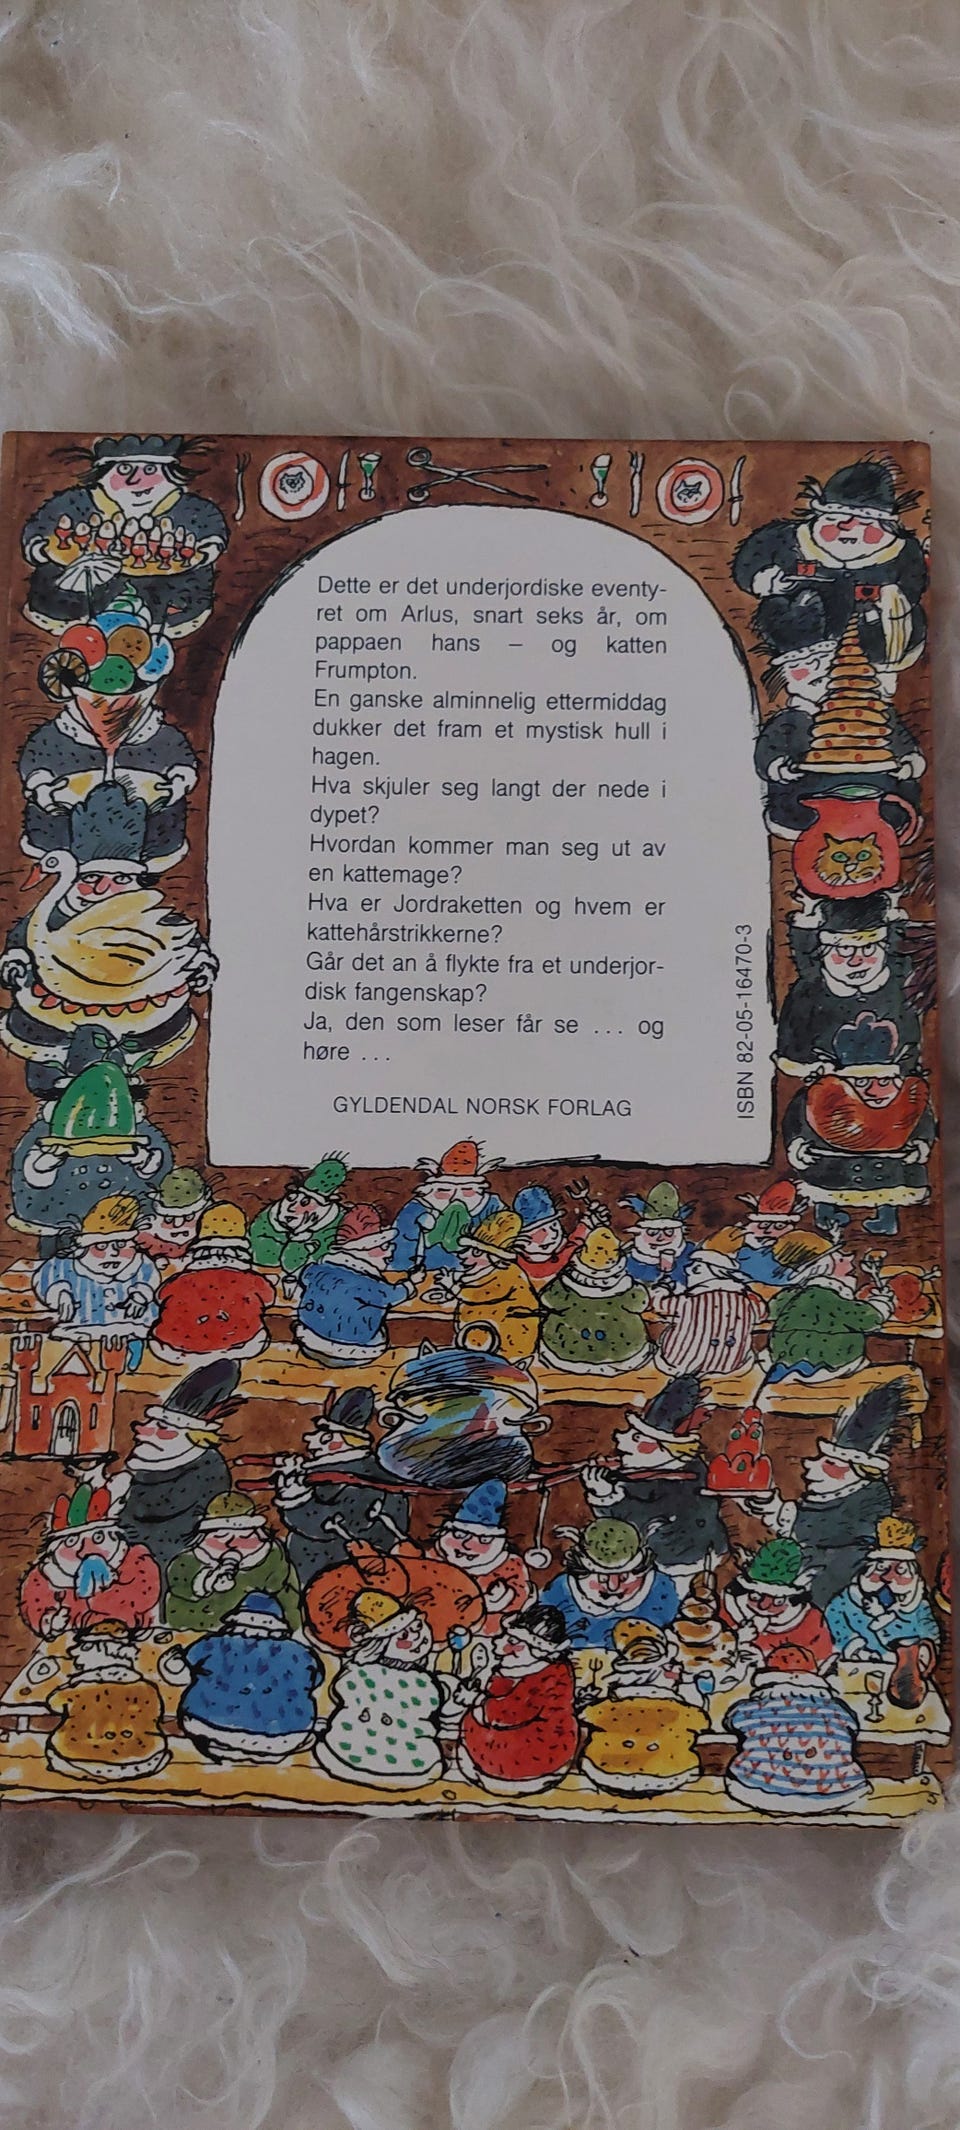 Dette er det underjordiske eventy-
ret om Arlus, snart seks år, om
pappaen hans – og katten
Frumpton.
En ganske alminnelig ettermiddag
dukker det fram et mystisk hull i
hagen.
Hva skjuler seg langt der nede i
dypet?
Hvordan kommer man seg ut av
en kattemage?
Hva er Jordraketten og hvem er
kattehårstrikkerne?
Går det an å flykte fra et underjor-
disk fangenskap?
Ja, den som leser får se ... og
høre ...
GYLDENDAL NORSK FORLAG
ISBN 82-05-16470-3